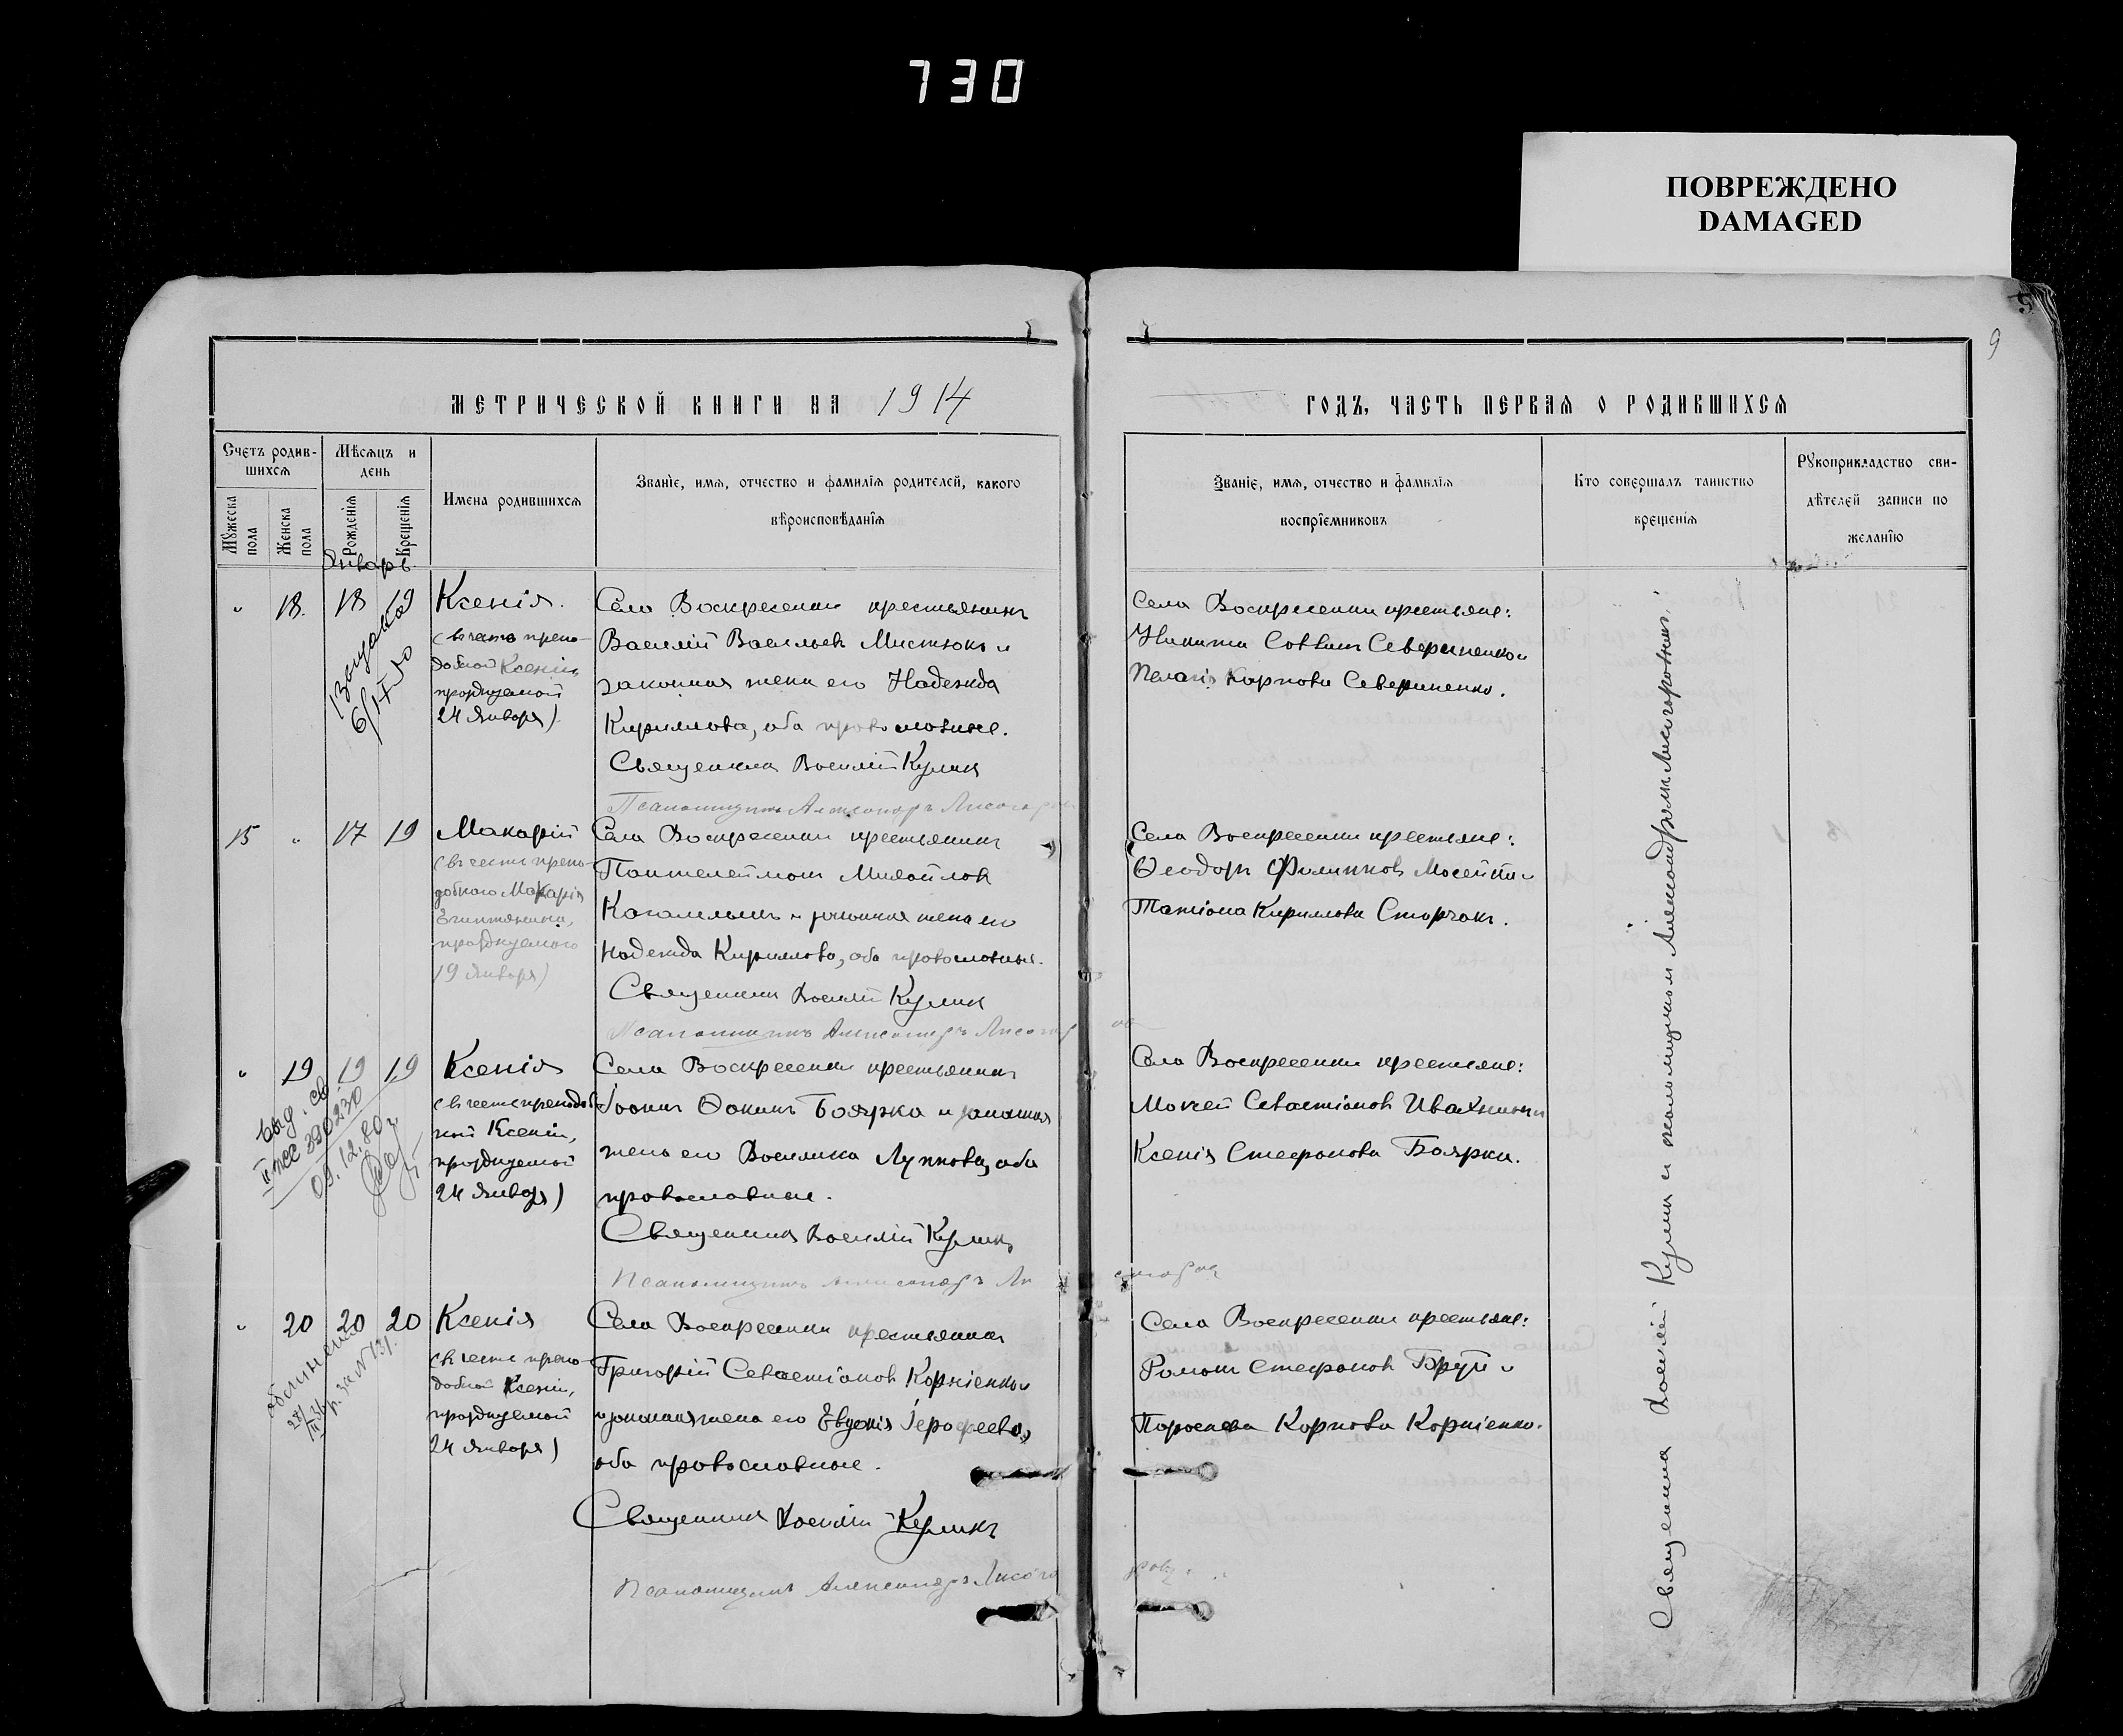 730
ПОВРЕЖДЕНО
DAMAGED
9
МЕТРИЧЕСКОЙ КНИГИ НА 1914
ГОДЪ, ЧАСТЬ ПЕРВАЯ О РОДИВШИХСЯ
Счетъ родив-
шихся
Мѣсяцъ и
день
Мужеска
пола
Женска
пола
Рожденія
Крещенія
Имена родившихся
Званіе, имя, отчество и фамилія родителей, какого
вѣроисповѣданія
Званіе, имя, отчество и фамилія
воспріемниковъ
Кто совершалъ таинство
крещенія
Рукоприкладство сви-
дѣтелей записи по
желанію
Январь.
" 18. 18 19 Ксенія.
(въ честь препо-
добной Ксеніи,
празднуемой
24 Января)
6/IX 50
Села Воскресенки крестьянинъ
Василій Васильевъ Мистюкъ и
законная жена его Надежда
Кириллова, оба православные.
Священникъ Василій Куликъ
Псаломщикъ Александръ Лисогоръ
Села Воскресенки крестьяне:
Никита Саввинъ Севериненко и
Пелагія Карпова Севериненко.
15 " 17 19 Макарій
(въ честь препо-
добнаго Макарія
Египтянина,
празднуемаго
19 Января)
Села Воскресенки крестьянинъ
Пантелеймонъ Михайловъ
и законная жена его
Надежда Кириллова, оба православные.
Священникъ Василій Куликъ
Псаломщикъ Александръ Лисогор
Села Воскресенки крестьяне:
Ѳеодоръ Филипповъ и
Татіана Кириллова Сторчакъ.
" 19 19 19 Ксенія
(въ честь преподоб-
ной Ксеніи,
празднуемой
24 Января)
Выд. св
390230
09.12.80г
Села Воскресенки крестьянинъ
Іоаннъ Ѳокинъ Боярко и законная
жена его Василиса Луппова, оба
православные.
Священникъ Василій Куликъ
Псаломщикъ Александръ Ли
согоръ
Села Воскресенки крестьяне:
Моисей Севастіановъ и
Ксенія Стефанова Боярко.
" 20 20 20 Ксенія
(въ честь препо-
добной Ксеніи,
празднуемой
24 Января)
Села Воскресенки крестьянинъ
Григорій Севастіановъ Корніенко и
законная жена его Евгенія Іерофеева,
оба православные.
Священникъ Василій Куликъ
Псаломщикъ Александръ Лисого
Села Воскресенки крестьяне:
Романъ Стефановъ и
Параскева Карпова Корніенко.
Священникъ Василій Куликъ и псаломщикъ Александръ